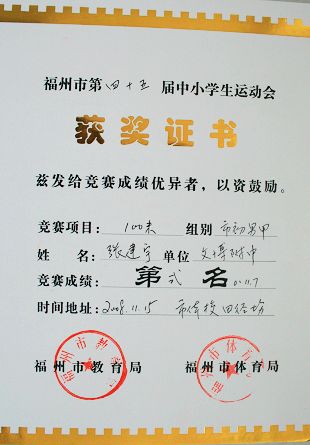 福州市第四十五届中小学生运动会
获奖证书
兹发给竞赛成绩优异者，以资鼓励。
竞赛项目：100米 组别 市初男甲
姓名：张建宇 单位 文博附中
竞赛成绩：第弍名 11.7
时间地址：2008.11.15 市体校田径场
福州市教育局 福州市体育局
福州市教
福州市体育